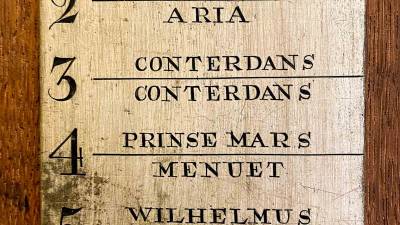 2
ARIA
3 CONTERDANS
CONTERDANS
4 PRINSE MARS
MENUET
5 WILHELMUS